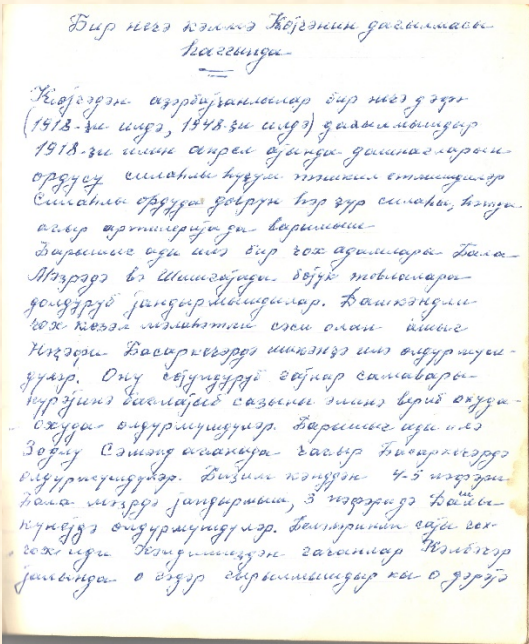 Бир нечә кәлмә Көјчәнин дағылмасы
һаггында
Көјчәдән азәрбајҹанлылар бир нечә дәфә
(1918-ҹи илдә, 1948-ҹи илдә) дағылмышдыр
1918-ҹи илин апрел ајында дашнагларын
ордусу силаһлы һүҹум тәшкил етмишдиләр
Силаһлы ордуда доврун һәр ҹүр силаһы, һәтта
ағыр артилерија да варымыш
Барышыг ады илә бир чох адамлары Бала
Мәзрәдә вә Шишгајада бөјүк төвләләрә
долдуруб јандырмышдылар. Башкәндли
чох көзәл мәлаһәтли сәси олан ашыг
Нәҹәфи Басаркечәрдә ишкәнҹә илә өлдүрмүш-
дүләр. Ону сојундуруб гајнар самавары
күрәјинә бағлајыб сазыны әлинә вериб охуда-
охуда өлдүрмүшдүләр. Барышыг ады илә
Зодлу Сәмәнд ағаныда чағыр Басаркечәрдә
өлдүрмүшдүләр. Бизим кәнддән 4-5 нәфәри
Бала мәзрәдә јандырмыш, 3 нәфәридә Башлы
күнејдә өлдүрмүшдүләр. сајы чох-
чох иди Кәндимиздән гачанлар Кәлбәҹәр
јалында о гәдәр гырылмышдыр ки о дәрәјә